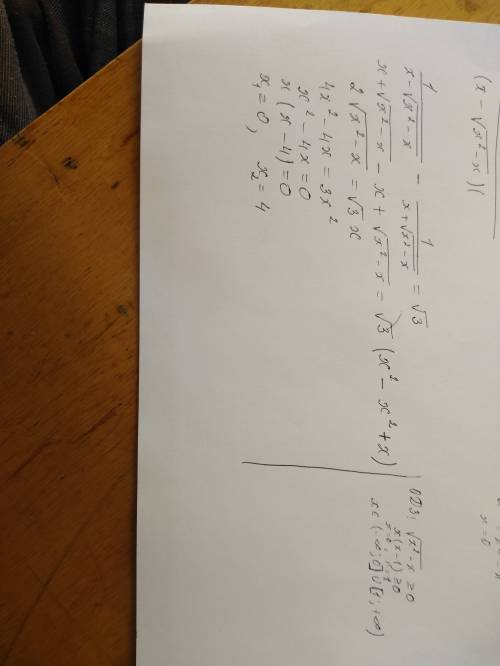 (x - √x² - x)(
1/(x - √x² - x) - 1/(x + √x² - x) = √3
x + √x² - x - x + √x² - x = √3 (x² - x² + x)
2 √x² - x = √3 x
4x² - 4x = 3x²
x² - 4x = 0
x (x - 4) = 0
x₁ = 0, x₂ = 4
ОДЗ: √x² - x ≥ 0
x(x - 1) ≥ 0
x ∈ (-∞; 0] ∪ [1; +∞)
x = 0